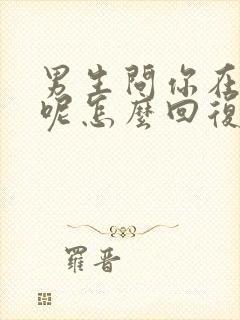 男生問你在
呢怎麼回復
羅晋